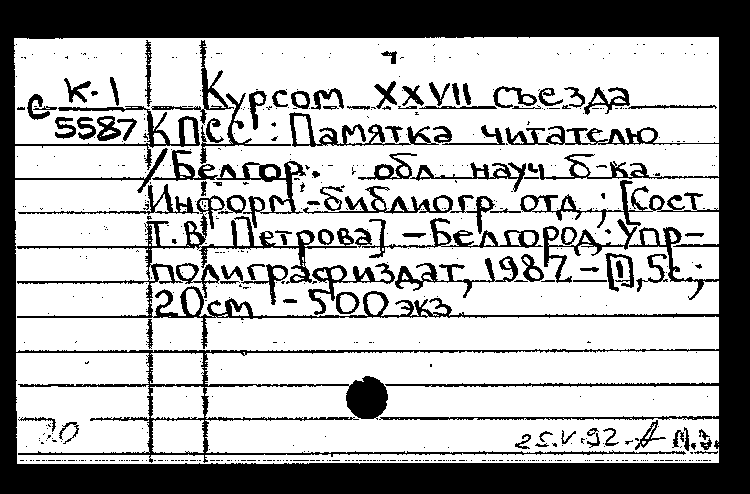 с К-1 Курсом XXVII съезда
5587 КПСС : Памятка читателю
/ Белгор. обл. науч б-ка.
Информ.-библиогр отд ; [Сост
Т.В. Петрова] – Белгород: Упр-
полиграфиздат, 1987. – [1], 5с.;
20см – 500 экз.
20
25.V.92